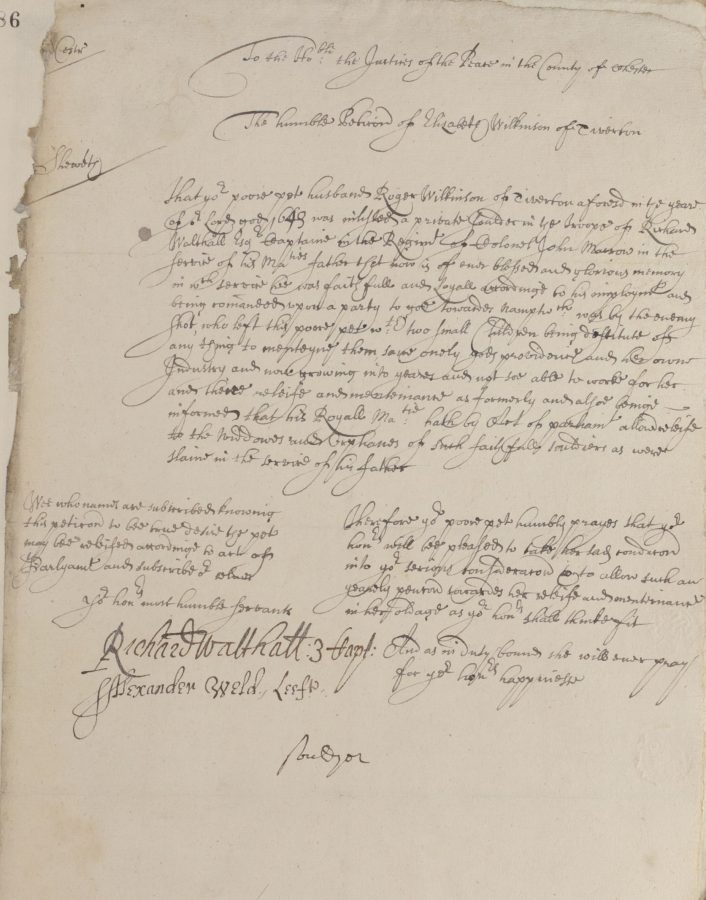 86
Cestr
To the Ho:ble the Justices of the Peace in the County of Chester
The humble Peticon of Elizabeth Wilkinson of Tiverton
Sheweth
That yor poore pet husband Roger Wilkinson of Tiverton aforesd in the yeare
of or Lord god was inlisted a private souldier in the troope of Richard
Walthall Esqr Captaine in the Regimt of Colonel John Marrow in the
service of his Maties father that now is of ever blessed and glorious memory
in wch service hee was faithfull and loyall accordinge to his imploymt and
being comanded upon a party to goe towardes Namptwch was by the enemy
shot, who left this poore pet wth two small Children being destitute of
any thing to menteyne them save onely gods providence and her owne
Industry and now growing into yeares and not soe able to worke for her
and theire releife and mentenance as formerly and alsoe beinge
informed that his Royall Ma:tie hath by Act of parliamt allowed releife
to the widdowes and Orphanes of such faithfull souldiers as were
slaine in the service of his father
Wee who names are subscribed knowing
this peticon to bee true desire the pet
may bee releifed accordinge to act of
Parlyamt and subscribe or selves
Yor honrs most humble servants
Richard Walthall: Capt:
Allexander Weld, Leeft.
Therefore yor poore pet humbly prayes that yor
honrs will bee pleased to take her sad condicon
into yor serious consideracon & to allow such an
yearely pencon towardes her releife and mentenance
in her old age as yor honrs shall thinke fit
And as in duty bound she will ever pray
for yor honrs happinesse